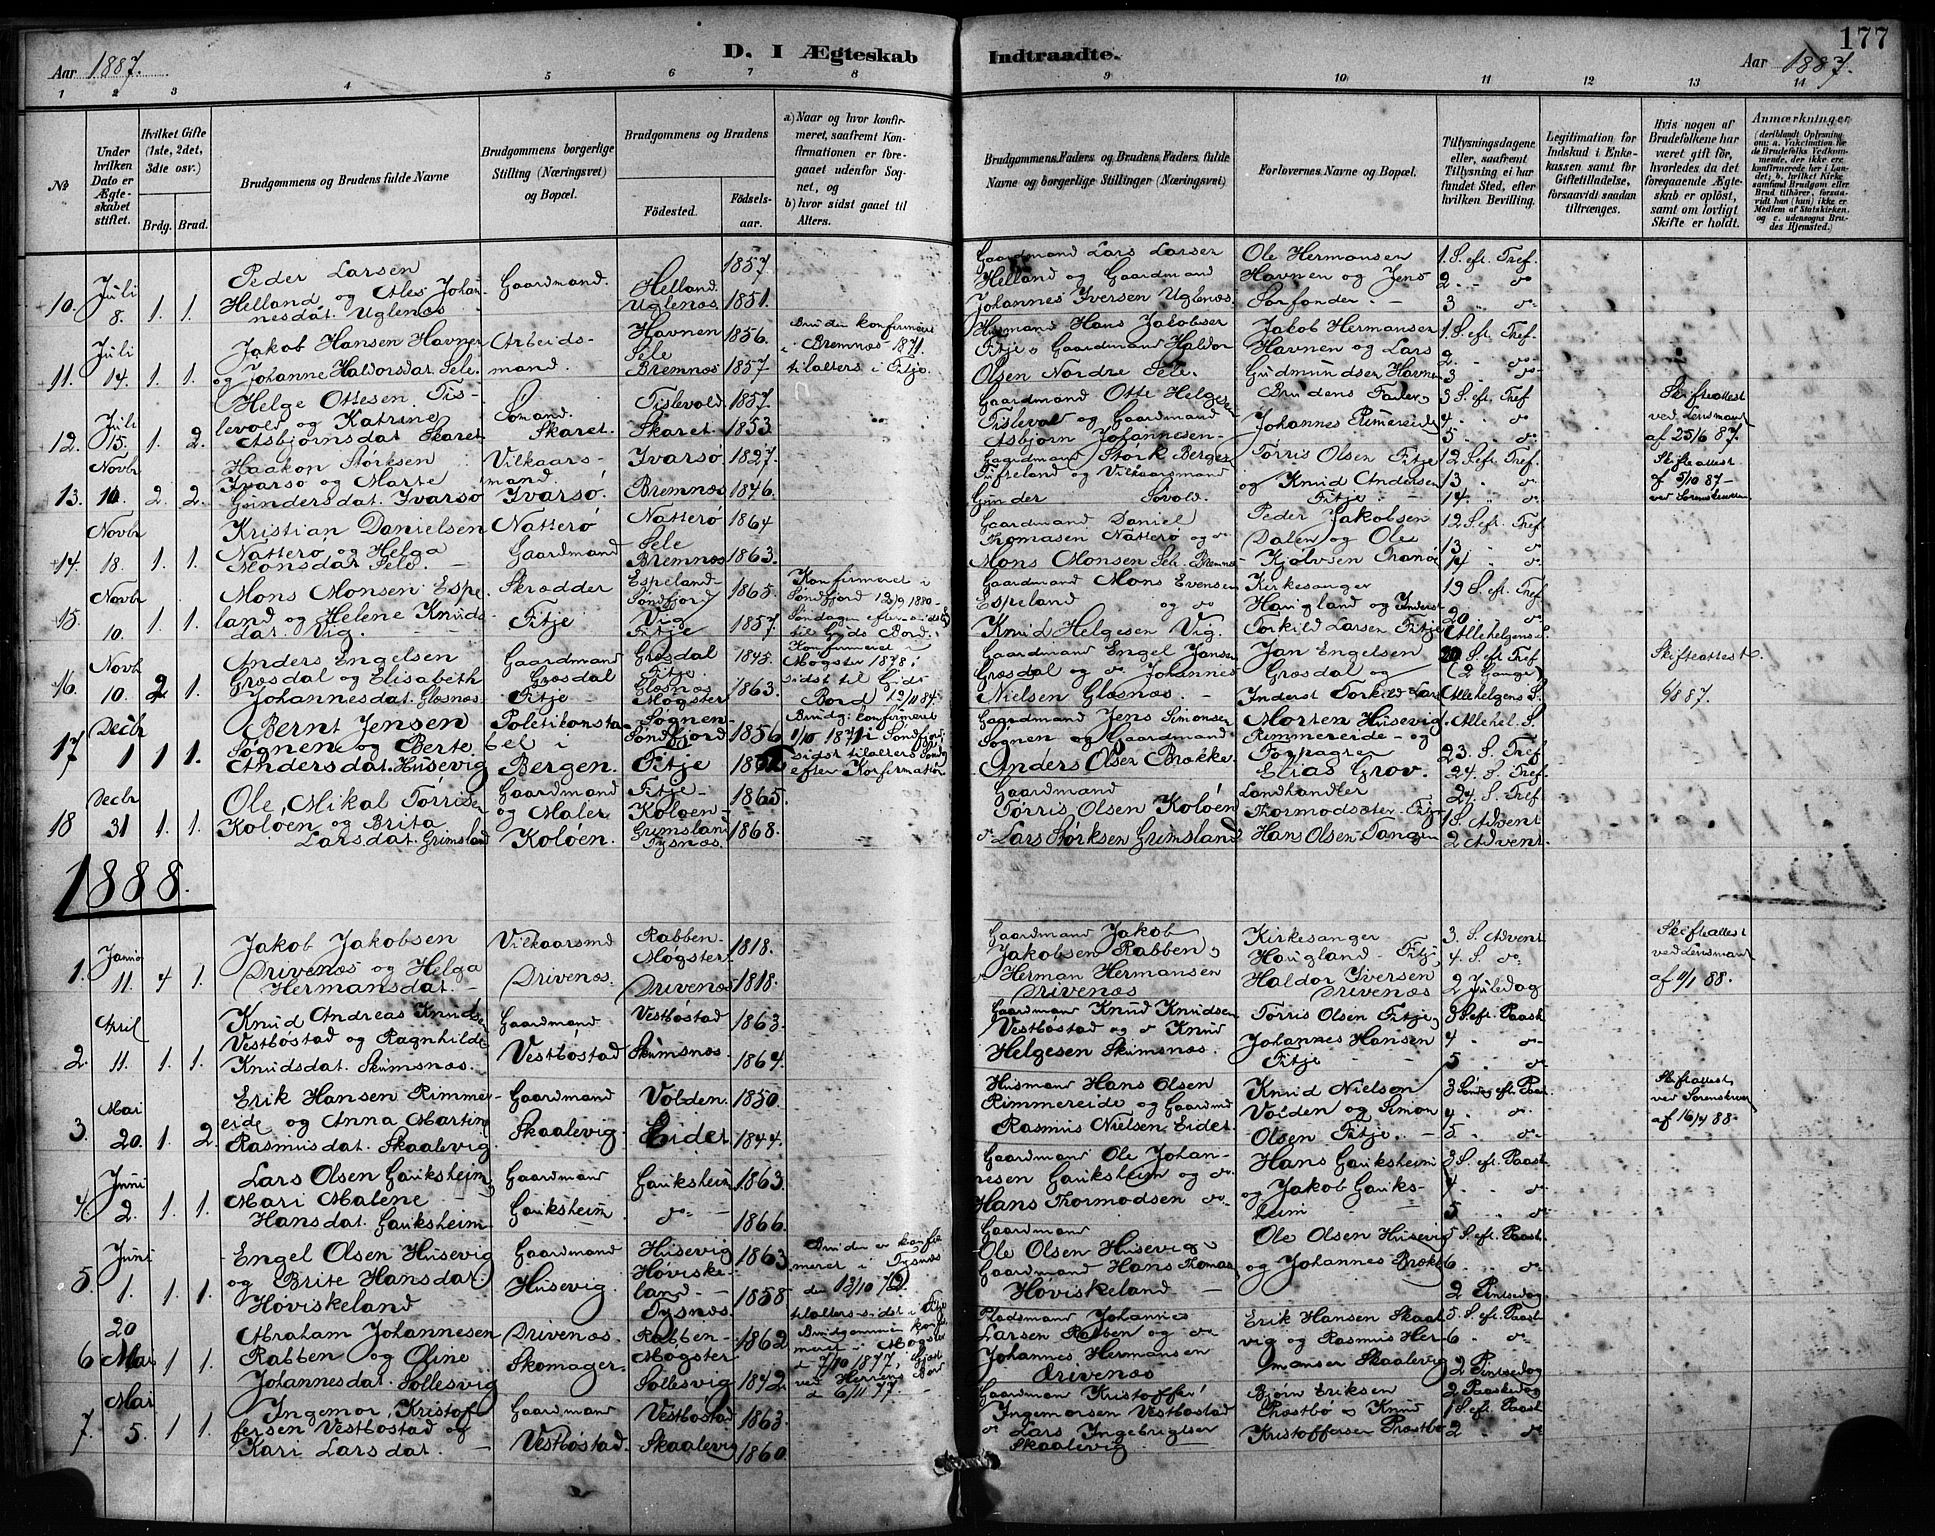 177
D. I Ægteskab Indtraadte.
Aar 1887.
Aar 1887.
1 2 3 4 5 6 7 8 9 10 11 12 13 14
No
Under hvilken Dato er Ægteskabet stiftet.
Hvilket Gifte (1ste, 2det, 3dte osv.)
Brdg. Brud.
Brudgommens og Brudens fulde Navne
Brudgommens borgerlige Stilling (Næringsvei) og Bopæl.
Brudgommens og Brudens
Fødested. Fødselsaar.
a) Naar og hvor konfirmeret, saafremt Konfirmationen er foregaaet udenfor Sognet, og
b) hvor sidst gaaet til Alters.
Brudgommens Faders og Brudens Faders fulde Navne og borgerlige Stillinger (Næringsvei)
Forlovernes Navne og Bopæl.
Tillysningsdagene eller, saafremt Tillysning ei har fundet Sted, efter hvilken Bevilling.
Legitimation for Indskud i Enkekassen samt for Giftetilladelse, forsaavidt saadan tiltrænges.
Hvis nogen af Brudefolkene har været gift før, hvorledes da det foregaaende Ægteskab er opløst, samt om lovligt Skifte er holdt.
Anmærkninger
10. Juli 8. 1. 1.
Peder Larsen
Helland og Ales Johan-
nesdat. Uglenæs
Gaardmand.
Helland 1857.
Uglenæs 1851.
Gaardmand Lars Larsen
Helland og Gaardmand
Johannes Iversen Uglenæs.
Ole Hermansen
Havnen og Jens
1. S. eft. Tref.
2. " do
3 " do
11. Juli 14. 1. 1.
Jakob Hansen Havnen
og Johanne Haldorsdat. Sele.
Arbeids-
mand.
Havnen 1856.
Sele
Bremnæs 1857.
Bruden konfirmeret
i Bremnæs 1871.
tilalters i Fitje.
Husmand Hans Jakobsen
Fitje, Gaardmand Haldor
Olsen Nordre Sele.
Jakob Hermansen
Havnen og Lars
Gudmundsen Havnen
1. S. eft. Tref.
2. " do
3 " do
12. Juli 15. 1. 2.
Helge Ottesen Tis-
levold og Katrine
Asbjørnsdat Skaret
Sømand.
Skaret.
Tislevold 1857.
Skaret. 1853.
Gaardmand Otte Helgesen
Tislevold og Gaardmand
Asbjørn Johannesen
Brudens Fader,
Johannes Rimereide
3 S. eft. Tref
4. " do
5 " do
Skifteattest
ved lensmand
af 25/6 87.
13. Novbr 10. 2. 2.
Haakon Størksen
Ivarsø og Marte
Gundersdat. Ivarsø
Vilkaars-
mand.
Ivarsø.
Ivarsø 1827.
Bremnæs 1846.
Gaardmand Størk Berges
og Vilkaarsmand
Gunder Søvold.
Tørris Olsen Fitje
og Knud Andersen
Fitje.
12 S. eft. Tref.
13 " do
14. " do
Skifteattest
af 5/10 87
ved Sorenskriveren
14. Novbr 18. 1. 1.
Kristian Danielsen
Natterø og Helga
Monsdat Sele.
Natterø
Gaardmand
Natterø 1864
Sele
Bremnæs 1863.
Gaardmand Daniel
Thomasen Natterø og do
Mons Monsen Sele Bremnæs
Peder Jakobsen
Dalen og Ole
12 S. eft. Tref.
13 " do
14 " do
15. Novbr 10. 1. 1.
Mons Monsen Espe-
land og Helene Knuds-
dat. Vig.
Skrædder
Fitje
Espeland
Søndfjord 1865.
Vig
Fitje 1857.
Konfirmeret i
Søndfjord 12/9 1880
Søndagen efter
til Guds Bord.
Gaardmand Mons Evensen
Espeland og do
Knud Helgesen Vig.
Kirkesanger
Haugland og Inderst
Torkild Larsen Fitje
19 S. eft. Tref
20 " do
Allehelgens S.
16. Novbr 10. 2 1.
Anders Engelsen
Græsdal og Elisabeth
Johannesdat. Glæsnæs
Gaardmand
Græsdal
Fitje
Græsdal 1845.
Fitje.
Glæsnæs 1863.
Møgster
Konfirmeret i
Møgster 1878;
sidst til Guds
Bord 12/10 84.
Gaardmand Engel Jansen
Græsdal og do Johannes
Nielsen Glæsnæs.
Jan Engelsen
Græsdal og
Inderst Torkild Lars
20 S. eft. Tref
(2 Gange)
Allehelgens S.
Skifteattest.
6/8 87.
17 Decbr 1 1 1.
Bernt Jensen
Sognen og Berte
Andersdat. Husevig
Politikonsta-
bel i
Bergen.
Sognen
Søndfjord 1856
Fitje
Brudg: konfirmeret
1/10 1871 i Søndfjord,
sidst tilalters
efter Konfirmation
Gaardmand Jens Simonsen
Sognen og Gaardmand
Anders Olsen Brakke.
Morten Husevig
Rimmereide og
Elias Grov.
Allehel. S.
23. S. Tref
24. S. Tref
18 Decbr 31 1. 1.
Ole Mikal Tørrisen
Koløen og Brita
Larsdat. Grimsland
Gaardmand
og Maler
Koløen.
Fitje. 1865.
Koløen
Grimsland 1868.
Tysnæs.
Gaardmand
Tørris Olsen Koløen
do Lars Størksen Grimsland
Landhandler
Thormodsæter Fitje
Hans Olsen Tangen
24. S. Tref
1 S. Advent
2 Advent.
1888.
1. Janua 11. 4 1.
Jakob Jakobsen
Drivenæs og Helga
Hermansdat.
Vilkaarsmd
Drivenæs.
Rabben
Møgster 1818.
Drivenæs 1818.
Gaardmand Jakob
Jakobsen Rabben,
Herman Hermansen
Drivenæs
Kirkesanger
Haugland Fitje,
Haldor Iversen
Drivenæs
3. S. Advent
4. S. do
2 Juledag
Skifteattest
ved lensmand
af 9/1 88.
2. April 11. 1. 1.
Knud Andreas Knudsen
Vestbøstad og Ragnhilde
Knudsdat. Skumsnæs.
Gaardmand
Vestbøstad
Vestbøstad 1863.
Skumsnæs 1864.
Gaardmand Knud Knudsen
Vestbøstad og do Knud
Helgesen Skumsnæs.
Tørris Olsen Fitje,
Johannes Hansen
Fitje
3 S. eft. Paask
4 " do
5 " do
3. Mai 20. 1. 2.
Erik Hansen Rimmer-
eide og Anna Martin
Rasmusdat. Skaalevig
Gaardmand
Skaalevig.
Volden. 1850.
Eidet 1844.
Husmand Hans Olsen
Rimmereide og Gaardmd
Rasmus Nielsen Eidet
Knud Nielsen
Volden og Simon
Olsen Fitje.
3 Søndag eft. Paas
4. " do
5. " do
Skifteattest
ved Sorenskriver
af 16/4 88.
4 Juni 2. 1. 1.
Lars Olsen Gauksheim,
Mari Malene
Hansdat. Gauksheim
Gaardmand
Gauksheim
Gauksheim 1863.
do 1866.
Gaardmand Ole Johan-
nesen Gauksheim og do
Hans Thormodsen do
Hans Gauksheim
og Jakob Gauks-
heim
3 S. eft. Paask
4. " do
5 " do
5. Juni 1. 1. 1.
Engel Olsen Husevig
og Brite Hansdat.
Høviskeland
Gaardmand
Husevig.
Husevig 1863
Høviske-
land 1858
Tysnæs.
Bruden er konfir
meret i Tysnæs
den 13/10 72.
tilalters sidst i Fitje
Gaardmand
Ole Olsen Husevig,
Gaardmand Hans Thomas
Høviskeland
Ole Olsen Husevig
og Johannes Bræk
5 S. eft. Paask.
6. " do
2 Pintsedag
6 20 Mai 1 1.
Abraham Johannesen
Rabben og Oline
Johannesdat. Sollesvig
Drivenæs.
Skomager.
Rabben 1862
Møgster
Sollesvig 1842
Brudgommen konfir
meret i Møgster
d 7/10 1877, Gjæst
ved Herrens Bord
d 6/11 77.
Pladsmand Johannes
Larsen Rabben og do
Johannes Hermansen
Drivenæs
Erik Hansen Skaal
vig og Rasmus Her-
mansen Skaalevig
5. S. eft. Paask
6 " do
2 Pintsedag
7. Mai 5. 1 1.
Ingemor Kristof-
fersen Vestbøstad og
Kari Larsdat.
Gaardmand
Vestbøstad.
Vestbøstad 1863.
Skaalevig 1860.
Gaardman Kristoffer
Ingemorsen Vestbøstad
do Lars Ingebrigtsen
Skaalevig
Bjørn Eriksen
Præstbø & Knud
Kristoffersen Præstbø
2 Paaskedag
1 S. eft. Paask
2 " do